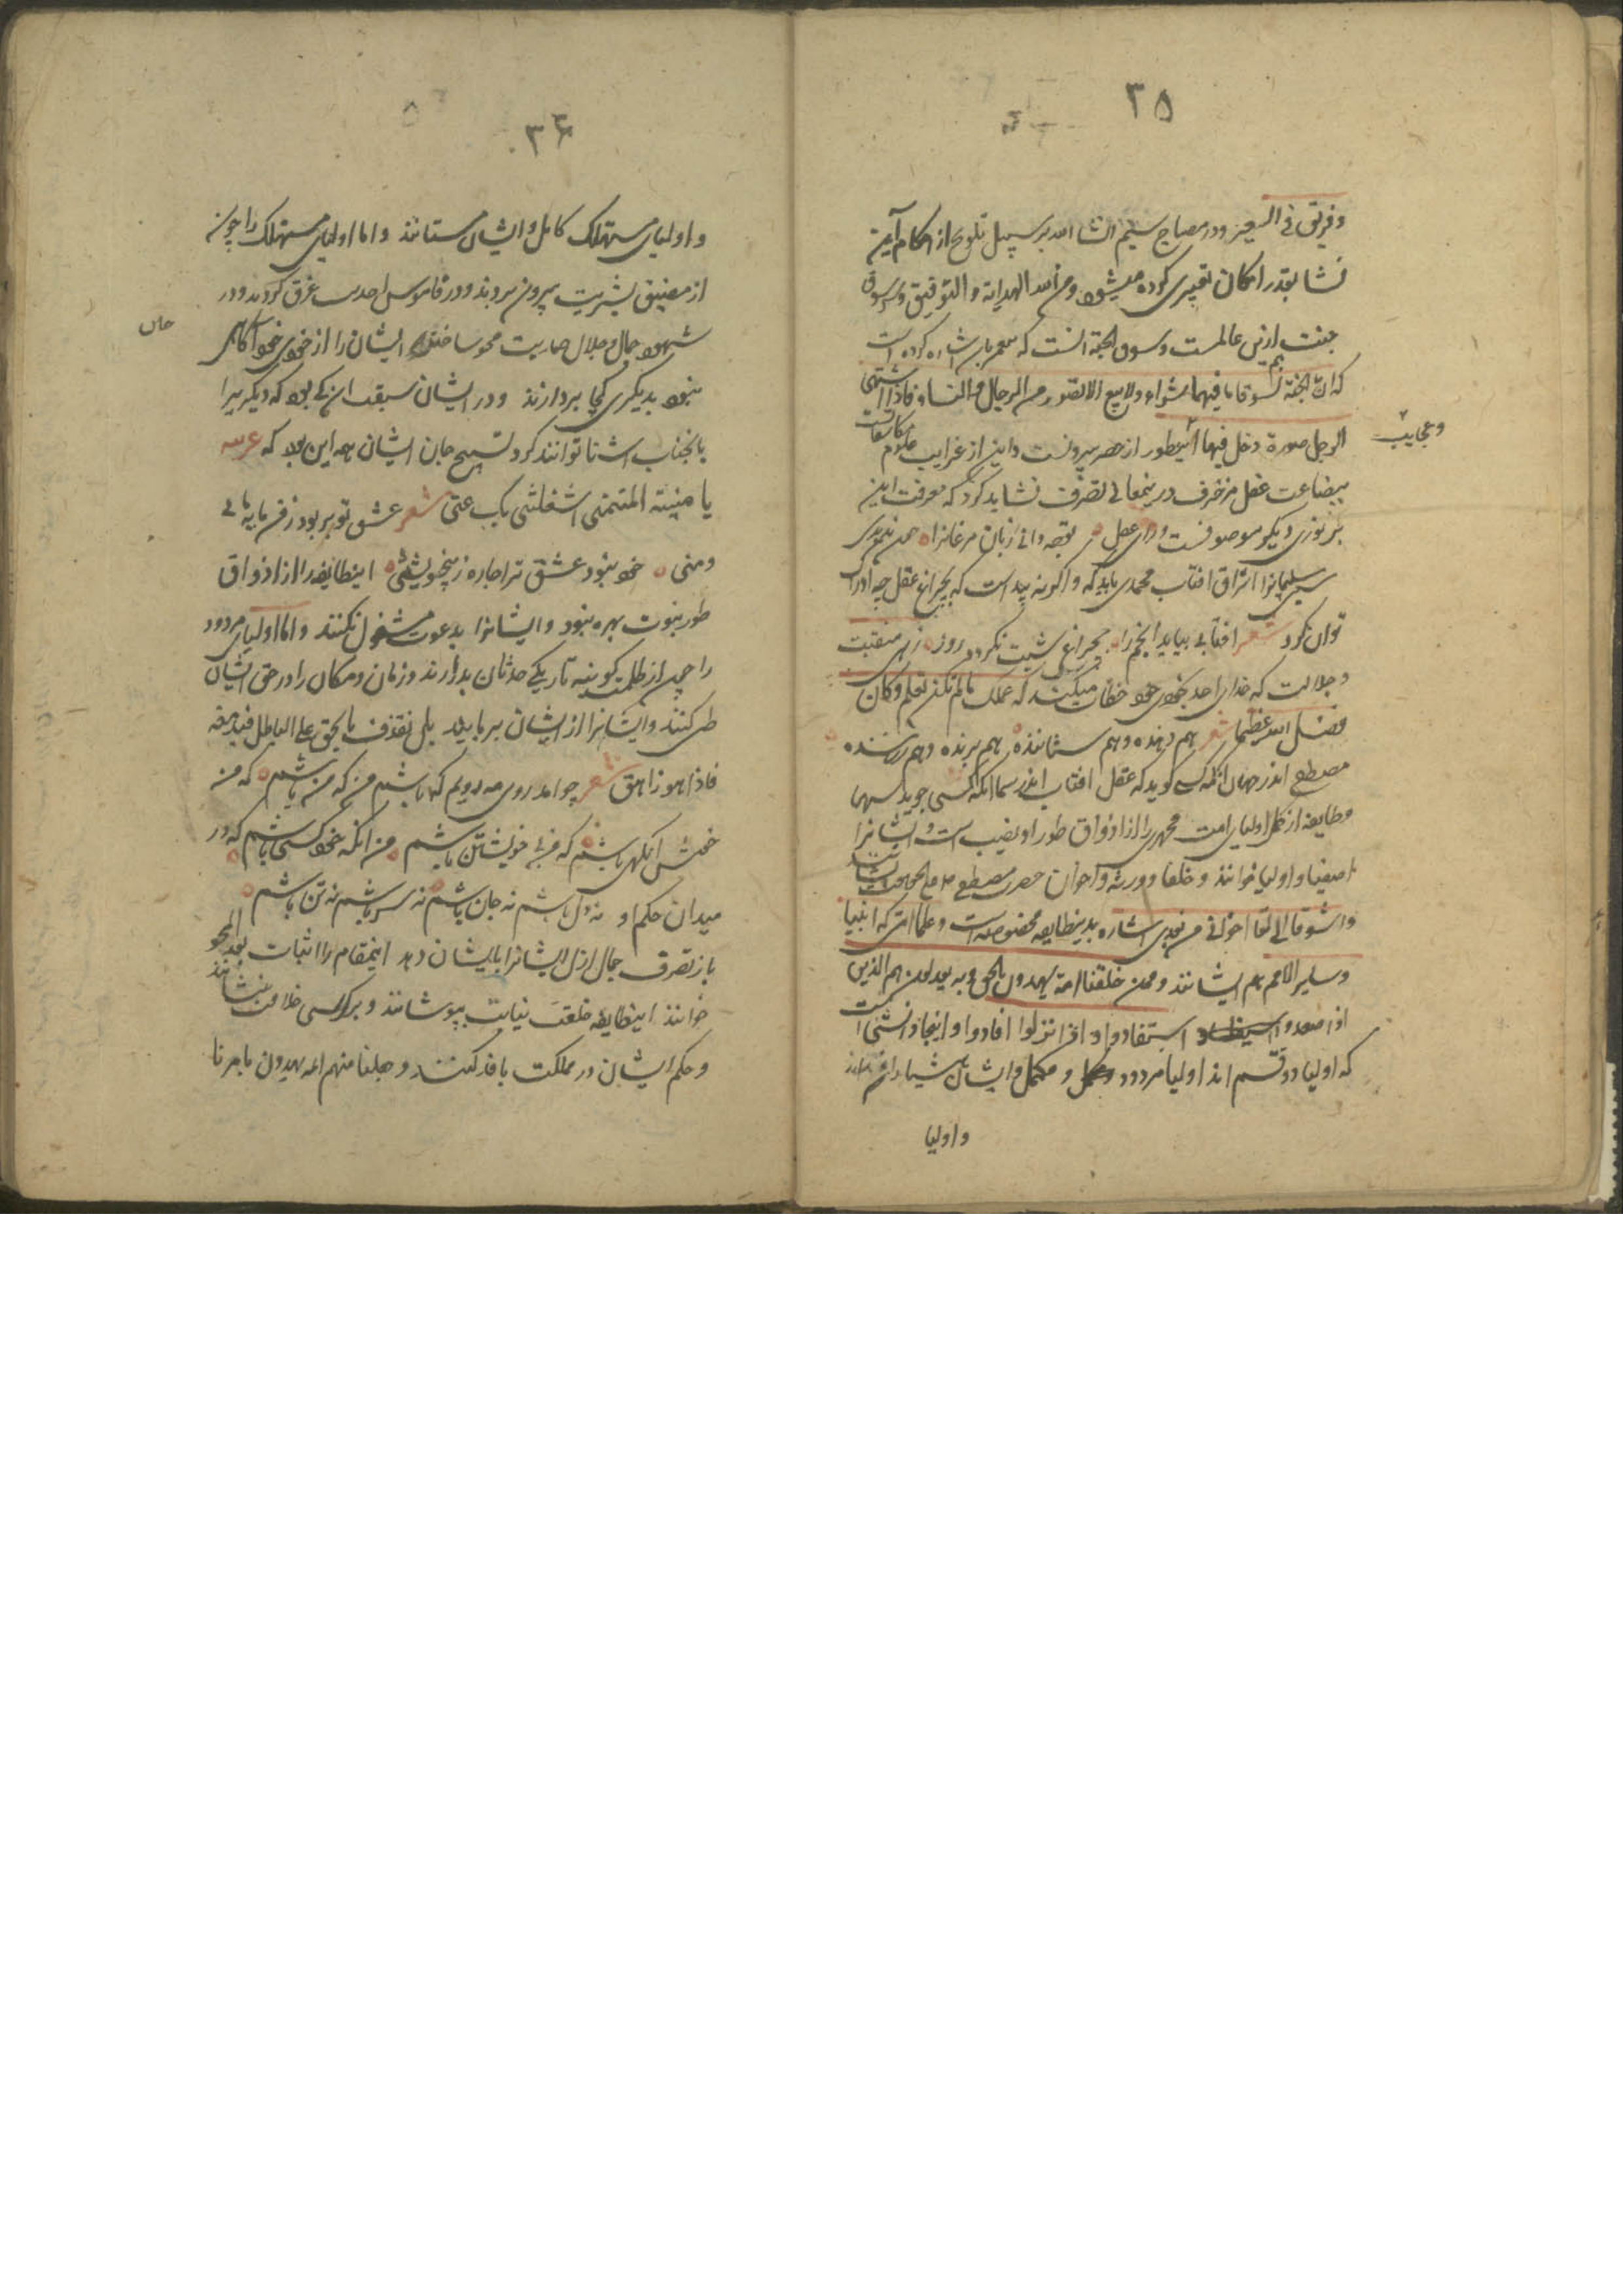 ۳۵
وفریق فی السعیر ودر مصباح سیم انشا الله بر سبیل تلویح از احکام آن
نشا بقدر امکان تعبیری کرده میشود ومن الله الهدایة والتوفیق وسوق
جنت ازین عالمست وسوق الجنة آنست که پیغمبر بآن اشاره کرده است
که ان فی الجنة لسوقا ما فیها شراء ولا بیع الا الصور من الرجال والنساء فاذا اشتهی
الرجل صورة دخل فیها این طور از حصر بیرونست واین از غرایب علوم مکاشفات
وعجایب
ببضاعت عقل مزخرف درین معانی تصرف نشاید کرد که معرفت این
بر نوری دیگر موقوفست ورای عقل تو چه دانی زبان مرغانرا چون ندیدی
سلیمانرا اشراق آفتاب محمدی باید که واگرنه پیداست که بچراغ عقل چه ادراک
توان کرد شعر آفتابی بباید انجم را بچراغ شبت نگردد روز زهی منقبت
وجلالت که خدای احد بخودی خود خطاب میکند که علمک ما لم تکن تعلم وکان
فضل الله عظیما شعر هم دهنده وهم ستاننده هم برنده وهم رساننده
مصطفی اندر جهان آنگه کسی گوید که عقل آفتاب اندر سما آنگه کسی جوید سها
وطایفه از کل اولیای امت محمد را از اذواق طور او نصیب است وایشانرا
اصفیا واولیا خوانند وخلفا وورثه واخوان حضرت مصطفی
واشوقا الی لقاء اخوانی من بعدی اشاره بدین طایفه مخصوصه است وعلمای امتی که انبیا
وسایر الامم هم ایشانند وممن خلقنا امة یهدون بالحق وبه یعدلون هم الذین
اذا صعدوا استفادوا واذا نزلوا افادوا واینجا دانستنی است
که اولیا دو قسم اند اولیاء مردود ومکمل وایشان هشیارانند
واولیا
۳۶
واولیای مستهلک کامل وایشان مستانند واما اولیای مستهلک را چون
از مضیق بشریت بیرون بردند ودر قاموس احدیت غرق کردند ودر
شهود جمال وجلال صمدیت محو ساختند ایشان را از خودی خود آگاهی
نبود بدیگری کجا پردازند ودر ایشان سبقت آن کی بود که دیگریرا
بآن جناب آشنا توانند کرد تسبیح جان ایشان همه این بود که عربیه
یا منیة المتمنی اشغلتنی بک عنی شعر عشق تو بربود ز من مایه مائی
ومنی خود نبود عشق ترا چاره ز بیخویشتنی این طایفه را از اذواق
طور نبوت بهره نبود وایشانرا بدعوت مشغول نکنند واما اولیای مردود
را چون از ظلمت کونیه تاریکی حدثان بدرآرند وزمان ومکان را در حق ایشان
طی کنند وایشانرا از ایشان برباید بل نقذف بالحق علی الباطل فیدمغه
فاذا هو زاهق شعر چو آمد روی مه رویم که باشم من که من باشم که من
خوش آنگهی باشم که من بی خویشتن باشم من آنگه خود کسی باشم که در
میدان حکم او نه دل باشم نه جان باشم نه سر باشم نه تن باشم
باز تصرف جمال ازل ایشانرا بایشان دهد این مقام را اثبات بعد المحو
خوانند این طایفه خلعت نیابت بپوشانند وبر کرسی خلافت بنشانند
وحکم ایشان در مملکت نافذ کنند وجعلنا منهم ائمة یهدون بامرنا